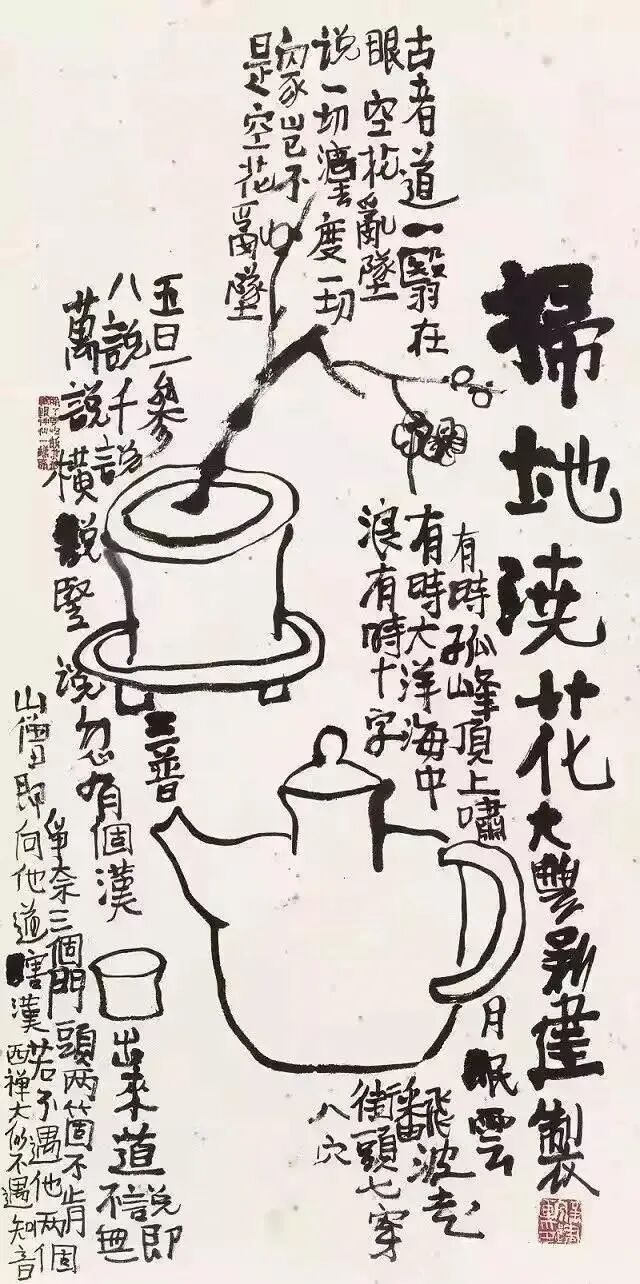 掃地澆花
大豐新建製
古者道一翳在
眼空花亂墜
说一切法去度一切
家豈不
是空花亂墜
有時孤峰頂上嘯
月眠雲
有時大洋海中
飜飛波走
浪有時十字
街頭七穿
八穴
五日一參
八說千說
萬說橫說豎說忽有個漢
出來道說即
不無
爭奈三個門頭两箇不肯
山僧即向他道瞎漢若不遇他两個
西禪大似不遇知音
三普